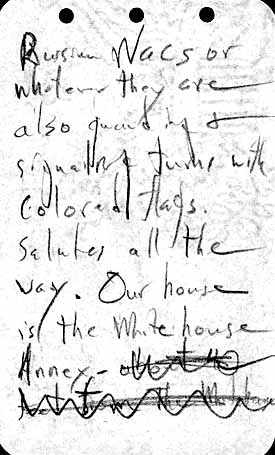 Russian Wacs or
whatever they are
also guarding &
signalling turns with
Colored flags.
Salutes all the
way. Our house
is the White house
Annex -